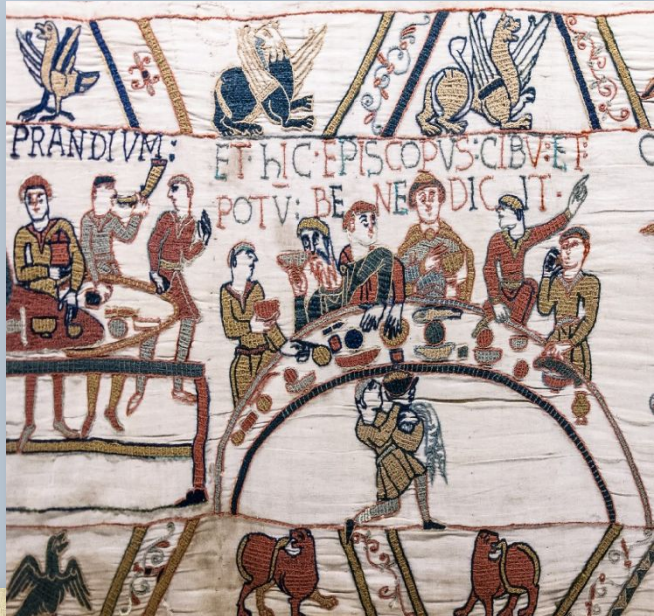 PRANDIVM:
ET·hIC·EPISCOPVS:CIBV̅:ET·
POTV̅:BENEDICIT·